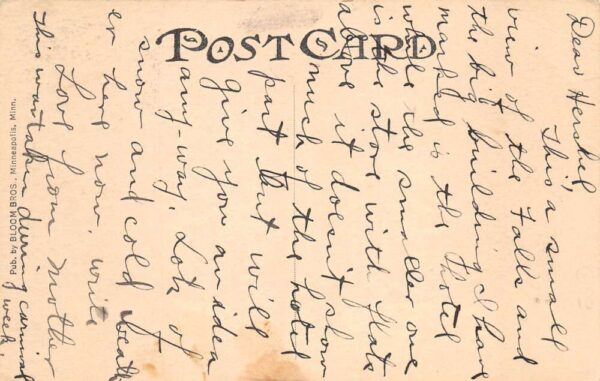 POST CARD
Dear Hershel,
This a small
view of the Falls and
the big building I have
marked is the Hotel
while the smaller one
is the store with flats
above it doesn't show
much of the hotel
part but will
give you an idea
any-way. Lots of
snow and cold weath
er here now, write
Love from Mother
This was taken during carnival
week.
Pub. by BLOOM BROS., Minneapolis, Minn.